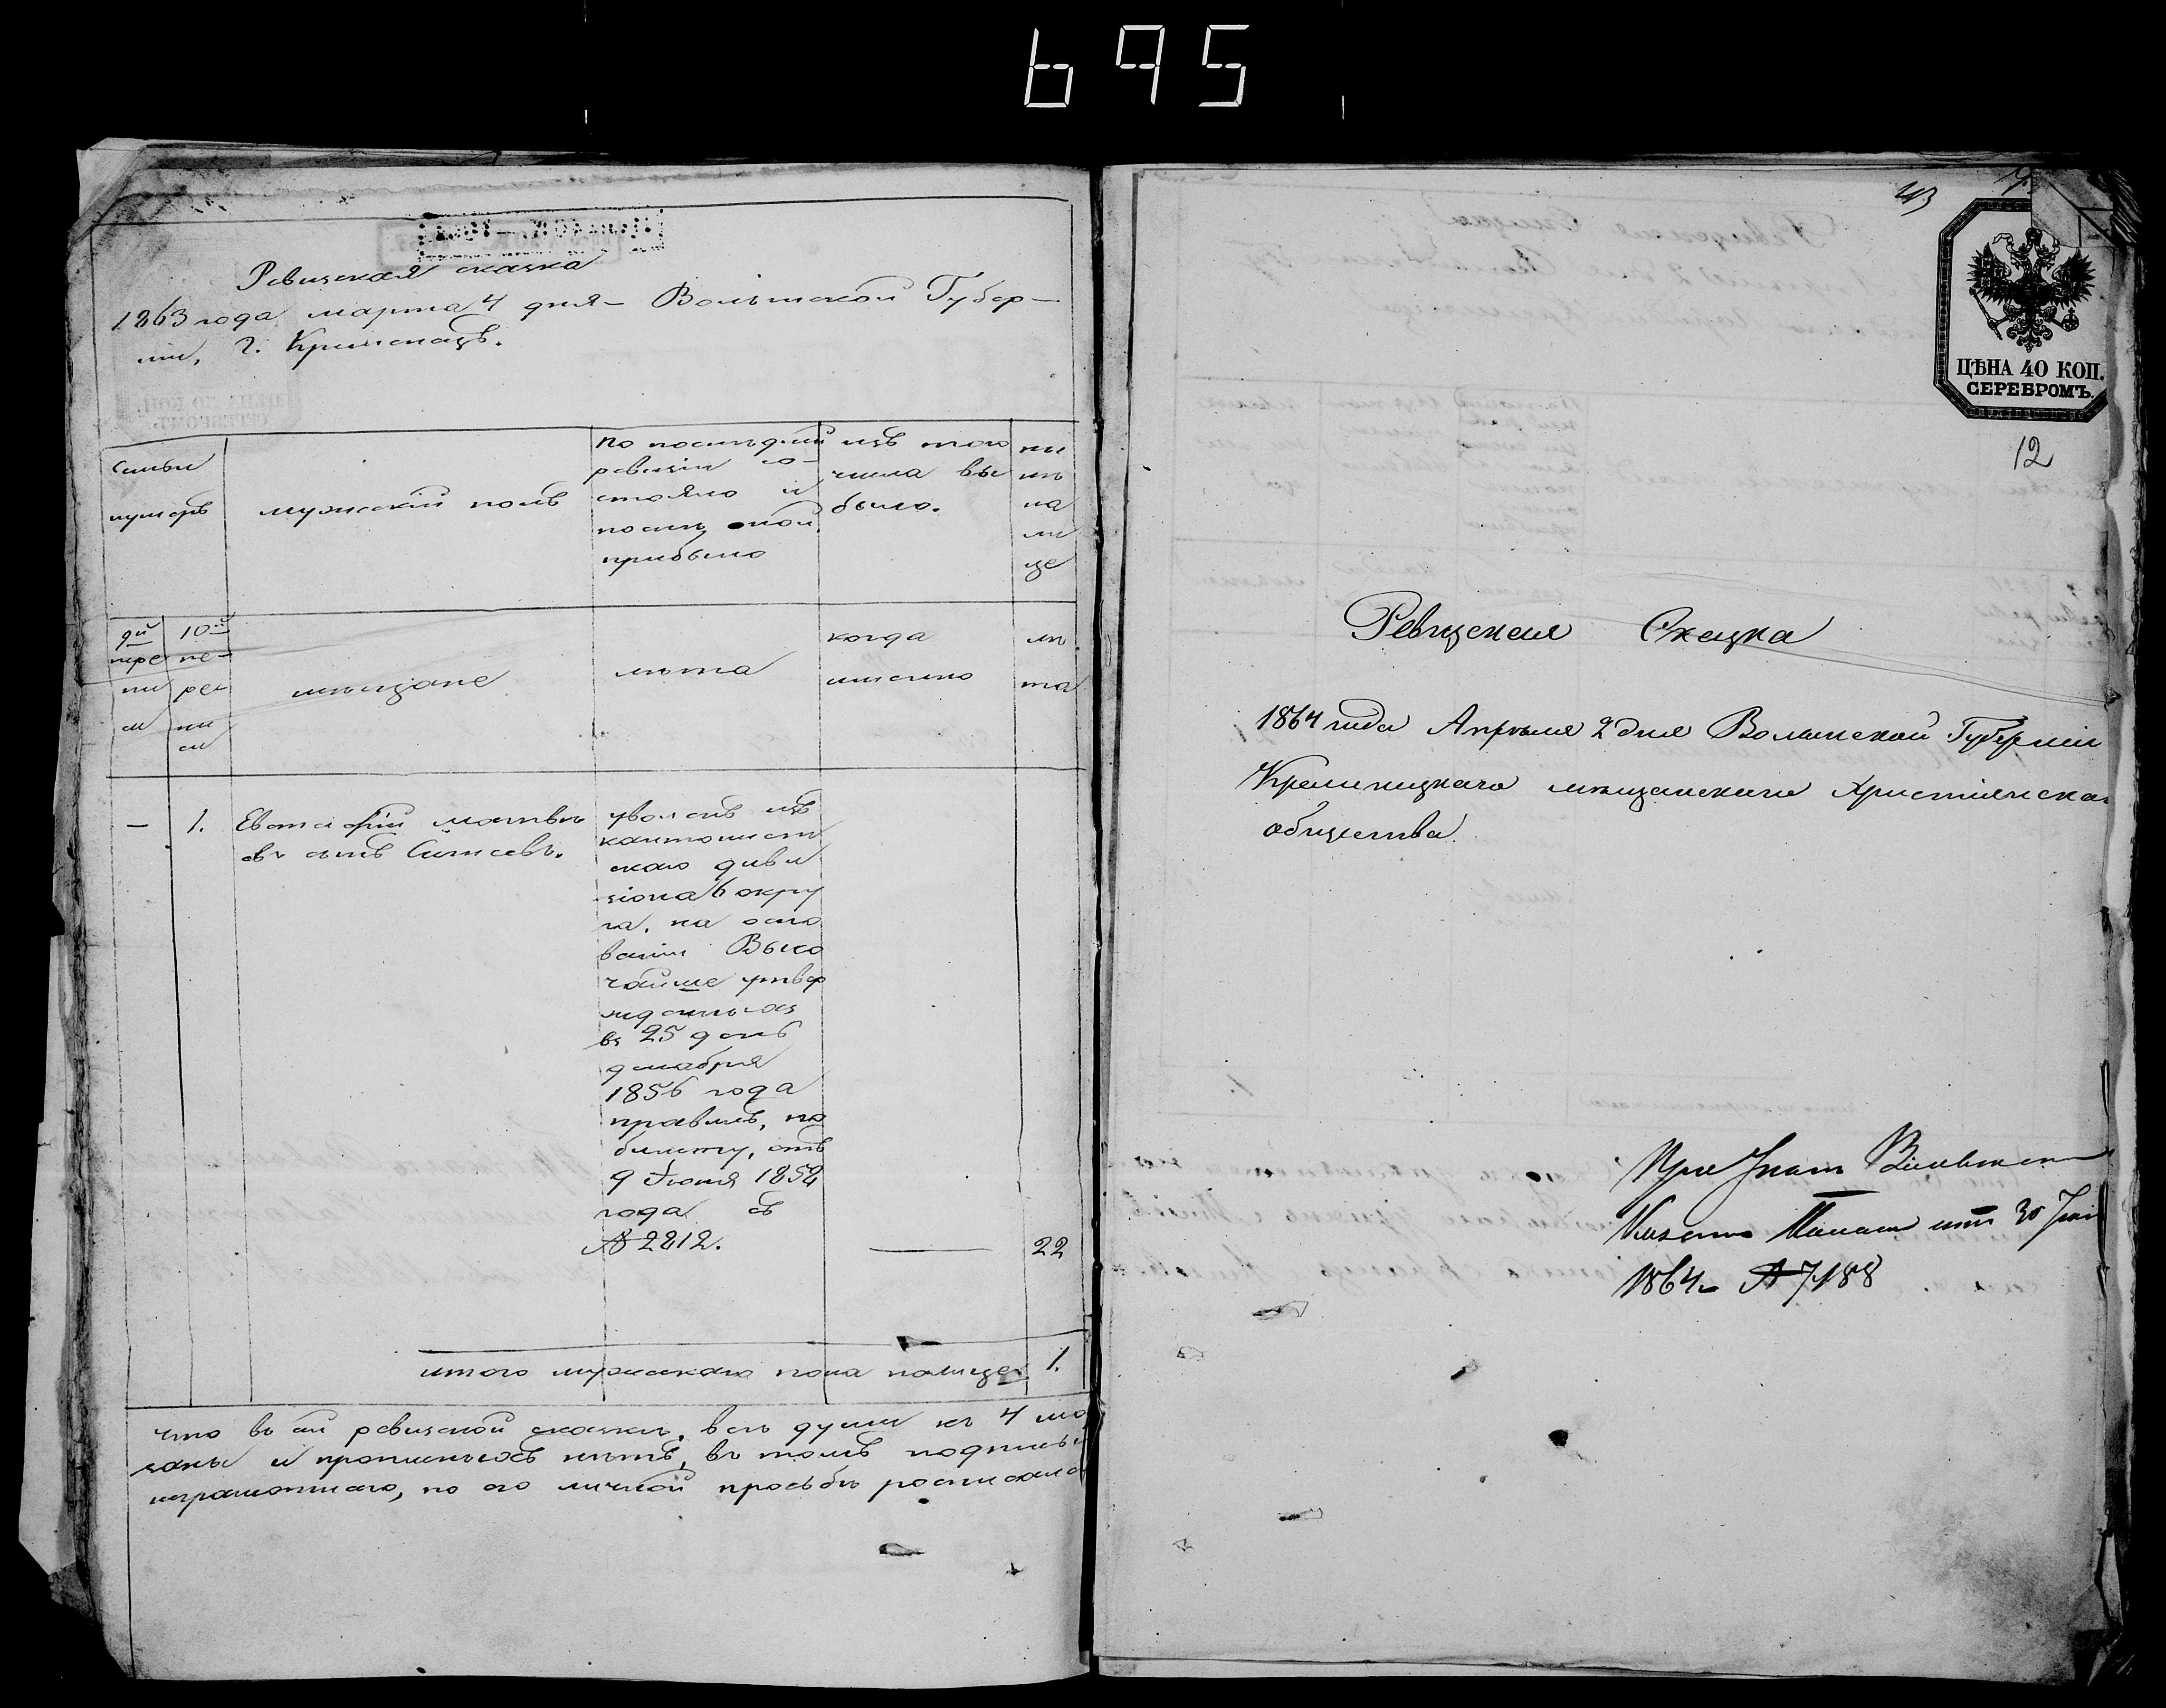 695
Ревизская сказка
1863 года марта 4 дня – Волынской Губер–
ніи, г. Кременецъ.
семьи
нумеръ
мужескій полъ
по послѣдней
ревизіи со–
стояло и
послѣ оной
прибыло
изъ того
числа вы
было.
ны
нѣ
на
ли
це
10й
пе–
ре–
пи
си
мѣщане
лѣта
когда
именно
лѣ
та
– 1. Евстафій Матвѣ
евъ сынъ
уволенъ изъ
кантонист
скаго диви
зіона 6 окру
га, на осно
ваніи Высо
чайше утвер
жденныхъ
въ 25 день
декабря
1856 года
правилъ, по
билету, отъ
9 Іюня 1858
года съ
№ 2212.
22
итого мужескаго пола налице 1.
что въ сей ревизской сказкѣ, всѣ души къ 4 мар
и прописныхъ нѣтъ, въ томъ
неграмотнаго, по его личной просьбѣ росписался
43
ЦѢНА 40 КОП.
СЕРЕБРОМЪ.
12
Ревизская Сказка
1864 года Апрѣля 2 дня Волынской Губерніи
Кременецкаго мѣщанскаго Христіянска
общества
При
Казенн Палаты отъ 30
1864 – № 7188